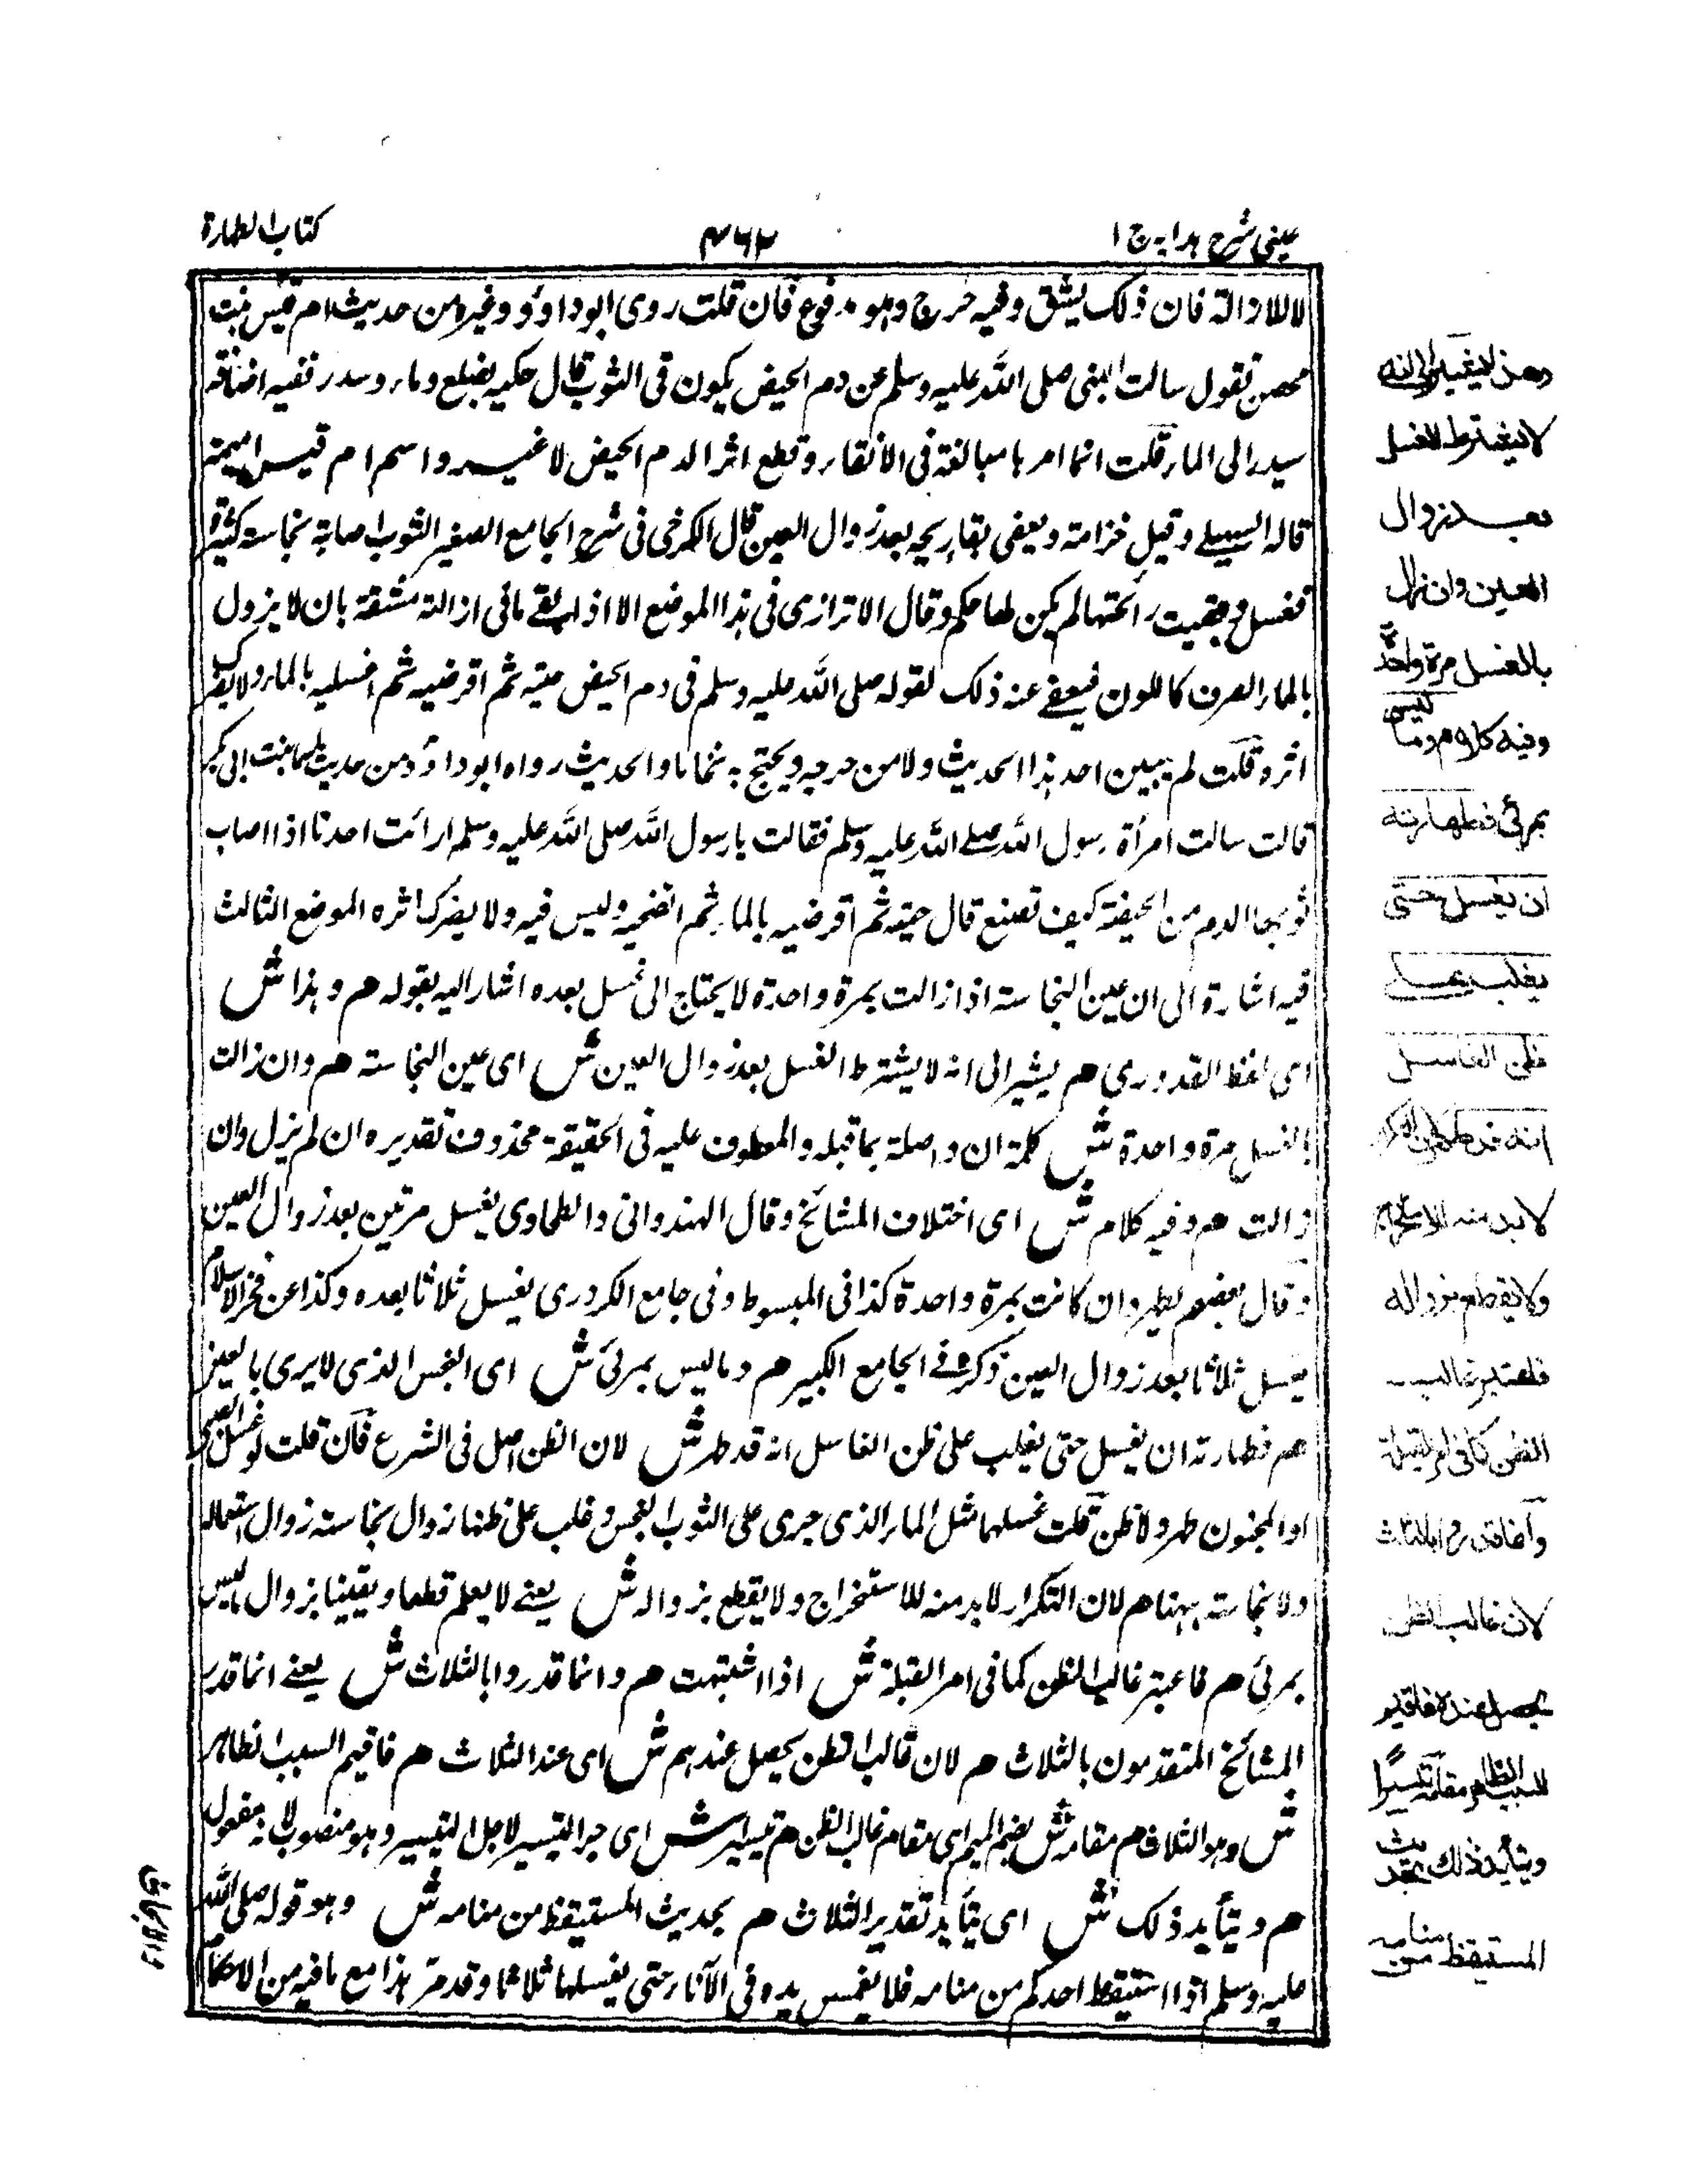 عینی شرح ہدایہ ج ۱
۴۶۲
کتاب الطہارة
لا للازالة فان ذلک یشق وفیه حرج وہو مرفوع فان قلت روی ابوداؤد وغیره من حدیث ام قیس بنت
محصن تقول سالت النبی صلی اللہ علیہ وسلم عن دم الحیض یکون فی الثوب قال حکیه بضلع وماء وسدر ففیه اضافة
سدر الی الماء قلت انما امر بامبالغة فی الانقاء وقطع اثر الدم الحیض لا غیر واسم ام قیس امیمة
قاله السہیلے وقیل خزامة ویعفی بقاء ریحه بعد زوال العین قال الکرخی فی شرح الجامع الصغیر الثوب اصابة نجاسة کثیرة
فغسل وبقیت رائحتہا لم یکن لها حکم وقال الاترازی فی ہذا الموضع الا اذا بقے مافی ازالته مشقة بان لا یزول
بالماء الصرف کاللون فیعفے عنه ذلک لقوله صلی اللہ علیہ وسلم فی دم الحیض حتیه ثم اقرضیه ثم اغسلیه بالماء ولا یضرک
اثره قلت لم یبین احد ہذا الحدیث ولا من خرجه ویحتج به والحدیث رواه ابوداؤد من حدیث اسماء بنت ابی بکر
قالت سالت امرأة رسول اللہ صلے اللہ علیہ وسلم فقالت یا رسول اللہ صلی اللہ علیہ وسلم ارائت احدنا اذا اصاب
ثوبہا الدم من الحیضة کیف تصنع قال حتیه ثم اقرضیه بالماء ثم انضحیه ولیس فیه ولا یضرک اثره الموضع الثالث
فیه اشارة الی ان عین النجاسة اذا زالت بمرة واحدة لا یحتاج الی غسل بعده اشار الیه بقوله ھم وہذا ش
ای لفظ القدوری ھم یشیر الی انه لا یشترط الغسل بعد زوال العین ش ای عین النجاسة ھم وان زالت
بالغسل مرة واحدة ش کلمة ان واصلة بماقبله والمعطوف علیه فی الحقیقة محذوف تقدیره ان لم یزل وان
زالت ھم وفیه کلام ش ای اختلاف المشائخ وقال الہندوانی والطحاوی یغسل مرتین بعد زوال العین
وقال بعضہم یطہر وان کانت بمرة واحدة کذا فی المبسوط وفی جامع الکردری یغسل ثلاثا بعده وکذا عن فخر الاسلام
یغسل ثلاثا بعد زوال العین ذکره فے الجامع الکبیر ھم ومالیس بمرئی ش ای النجس الذی لا یری بالعین
ھم فطہارته ان یغسل حتی یغلب علی ظن الغاسل انه قد طہر ش لان الظن اصل فی الشرع فان قلت لو غسل الصبی
او المجنون طہر ولا ظن قلت غسلہما مثل الماء الذی جری علی الثوب النجس وغلب علی ظنہا زوال نجاسته زوال استعماله
ولا نجاسة ہہنا ھم لان التکرار لا بد منه للاستخراج ولا یقطع بزواله ش یعنے لا یعلم قطعا ویقینا بزوال مالیس
بمرئی ھم فاعتبر غالب الظن کما فی امر القبلة ش اذا اشتبہت ھم وانما قدروا بالثلاث ش یعنے انما قدر
المشائخ المتقدمون بالثلاث ھم لان غالب الظن یحصل عندہم ش ای عند الثلاث ھم فاقیم السبب الظاہر
ش وہو الثلاث ھم مقامه ش بضم المیم ای مقام غالب الظن ھم تیسیرا ش ای لاجل التیسیر وہو منصوب لانه مفعول
ھم ویتأید ذلک ش ای یتأید تقدیر الثلاث ھم بحدیث المستیقظ من منامه ش وہو قوله صلی اللہ
علیہ وسلم اذا استیقظ احدکم من منامه فلا یغمس یده فی الآناء حتی یغسلہا ثلاثا وقد مر ہذا مع مافیه من الاحکام
وهذا یشیر الی انه
لا یشترط الغسل
بعد زوال
العین وان زال
بالغسل مرة واحدة
وفیه کلام وما لیس
بمرئی فطهارته
ان یغسل حتی
یغلب علی
ظن الغاسل
انه قد طهر لان التکرار
لا بد منه للاستخراج
ولا یقطع بزواله
فاعتبر غالب
الظن کما فی امر القبلة
وانما قدروا بالثلاث
لان غالب الظن
یحصل عنده فاقیم
السبب الظاهر مقامه تیسیرا
ویتأید ذلک بحدیث
المستیقظ من منامه